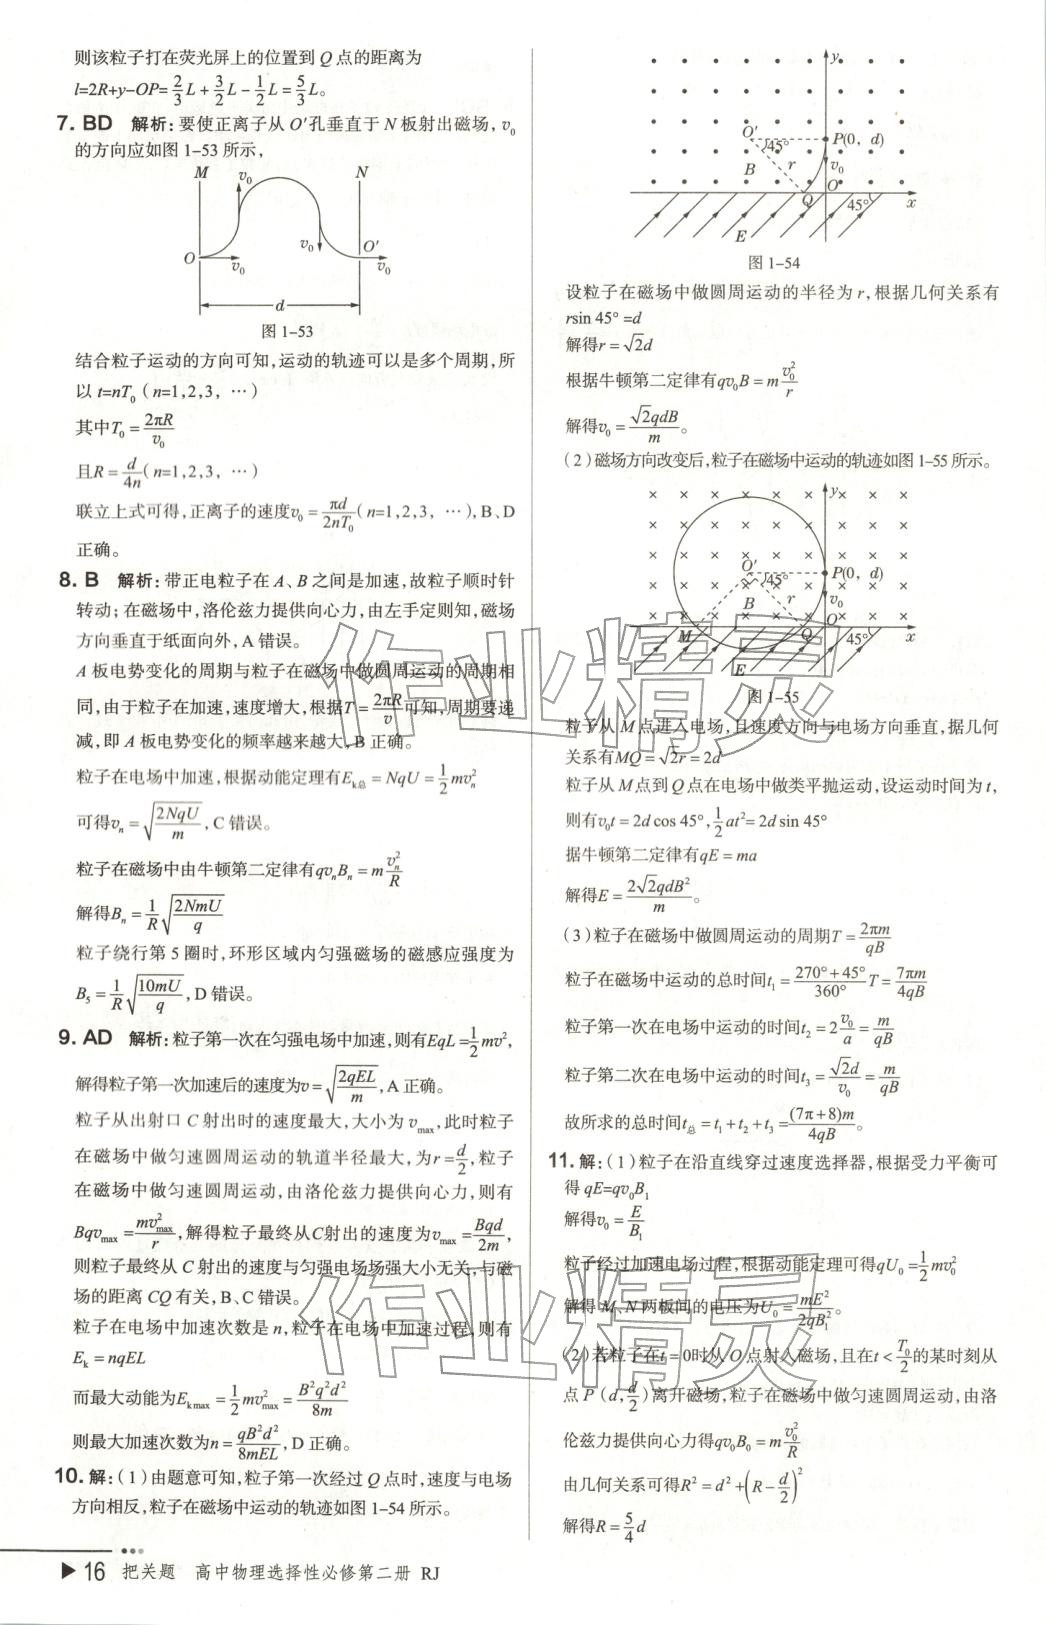 则该粒子打在荧光屏上的位置到 Q 点的距离为
l=2R+y-OP=2/3 L+3/2 L-1/2 L=5/3 L。
7. BD 解析:要使正离子从 O′孔垂直于 N 板射出磁场,v₀
的方向应如图 1-53 所示,
M v₀ N
v₀ O′
O v₀ v₀
d
图 1-53
结合粒子运动的方向可知,运动的轨迹可以是多个周期,所
以 t=nT₀(n=1,2,3,…)
其中T₀=2πR/v₀
且R=d/4n(n=1,2,3,…)
联立上式可得,正离子的速度v₀=πd/2nT₀(n=1,2,3,…),B、D
正确。
8. B 解析:带正电粒子在 A、B 之间是加速,故粒子顺时针
转动;在磁场中,洛伦兹力提供向心力,由左手定则知,磁场
方向垂直于纸面向外,A 错误。
A 板电势变化的周期与粒子在磁场中做圆周运动的周期相
同,由于粒子在加速,速度增大,根据T=2πR/v可知,周期要递
减,即 A 板电势变化的频率越来越大,B 正确。
粒子在电场中加速,根据动能定理有Eₖ总=NqU=1/2 mvₙ²
可得vₙ=√(2NqU/m),C 错误。
粒子在磁场中由牛顿第二定律有qvₙBₙ=m vₙ²/R
解得Bₙ=1/R √(2NmU/q)
粒子绕行第 5 圈时,环形区域内匀强磁场的磁感应强度为
B₅=1/R √(10mU/q),D 错误。
9. AD 解析:粒子第一次在匀强电场中加速,则有EqL=1/2 mv²,
解得粒子第一次加速后的速度为v=√(2qEL/m),A 正确。
粒子从出射口 C 射出时的速度最大,大小为 vmax,此时粒子
在磁场中做匀速圆周运动的轨道半径最大,为r=d/2,粒子
在磁场中做匀速圆周运动,由洛伦兹力提供向心力,则有
Bqvmax=mv²max/r,解得粒子最终从C射出的速度为vmax=Bqd/2m,
则粒子最终从 C 射出的速度与匀强电场场强大小无关,与磁
场的距离 CQ 有关,B、C 错误。
粒子在电场中加速次数是 n,粒子在电场中加速过程,则有
Eₖ=nqEL
而最大动能为Eₖmax=1/2 mv²max=B²q²d²/8m
则最大加速次数为n=qB²d²/8mEL,D 正确。
10. 解:(1)由题意可知,粒子第一次经过 Q 点时,速度与电场
方向相反,粒子在磁场中运动的轨迹如图 1-54 所示。
y
O′ P(0,d)
45°
B r v₀
Q O 45° x
E
图 1-54
设粒子在磁场中做圆周运动的半径为 r,根据几何关系有
rsin 45°=d
解得r=√2d
根据牛顿第二定律有qv₀B=m v₀²/r
解得v₀=√2qdB/m。
(2)磁场方向改变后,粒子在磁场中运动的轨迹如图 1-55 所示。
y
O′ P(0,d)
45°
B r v₀
M Q O 45° x
E
图 1-55
粒子从 M点进入电场,且速度方向与电场方向垂直,据几何
关系有MQ=√2r=2d
粒子从 M点到 Q点在电场中做类平抛运动,设运动时间为 t,
则有v₀t=2d cos 45°,1/2 at²=2d sin 45°
据牛顿第二定律有qE=ma
解得E=2√2qdB²/m。
(3)粒子在磁场中做圆周运动的周期T=2πm/qB
粒子在磁场中运动的总时间t₁=(270°+45°)/360° T=7πm/4qB
粒子第一次在电场中运动的时间t₂=2 v₀/a=m/qB
粒子第二次在电场中运动的时间t₃=√2d/v₀=m/qB
故所求的总时间t总=t₁+t₂+t₃=(7π+8)m/4qB。
11. 解:(1)粒子在沿直线穿过速度选择器,根据受力平衡可
得 qE=qv₀B₁
解得v₀=E/B₁
粒子经过加速电场过程,根据动能定理可得qU₀=1/2 mv₀²
解得 M、N 两板间的电压为U₀=mE²/2qB₁²。
(2)若粒子在t=0时从 O 点射入磁场,且在t<T₀/2的某时刻从
点 P(d,d/2)离开磁场,粒子在磁场中做匀速圆周运动,由洛
伦兹力提供向心力得qv₀B₀=m v₀²/R
由几何关系可得R²=d²+(R-d/2)²
解得R=5/4 d
作业精灵
作业精灵
▶16 把关题 高中物理选择性必修第二册 RJ